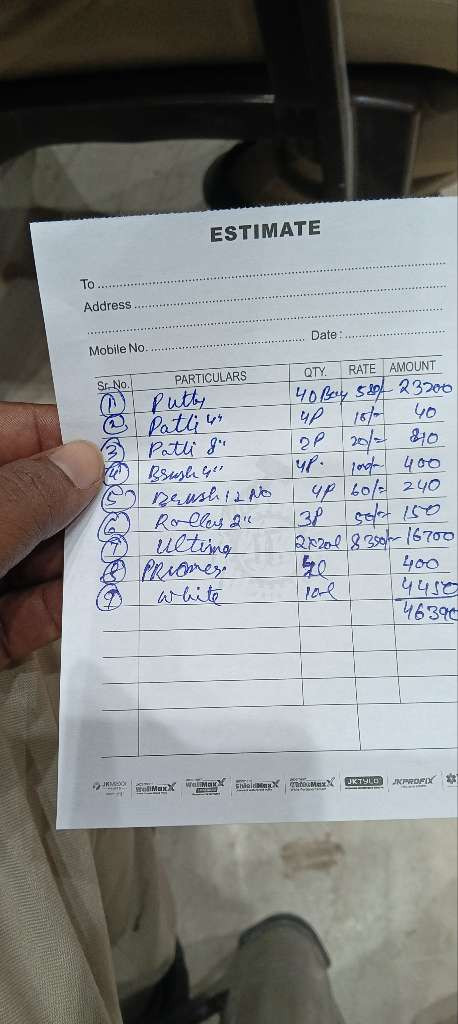 ESTIMATE
To
Address
Mobile No. Date:
Sr. No. PARTICULARS QTY. RATE AMOUNT
1 Putty 40 Bag 580/- 23200
2 Patti 4" 4P 10/- 40
3 Patti 8" 2P 20/-
4 Brush 4" 4P. 100/- 400
5 Brush 12 No 4P 60/- 240
6 Roller 2" 3P 50/- 150
7 Ultima 2x20l 8350/- 16700
8 400
9 White 10l 4450
46390
WallMaxX WallMaxX ShieldMaxX JKTYLO JKPROFIX